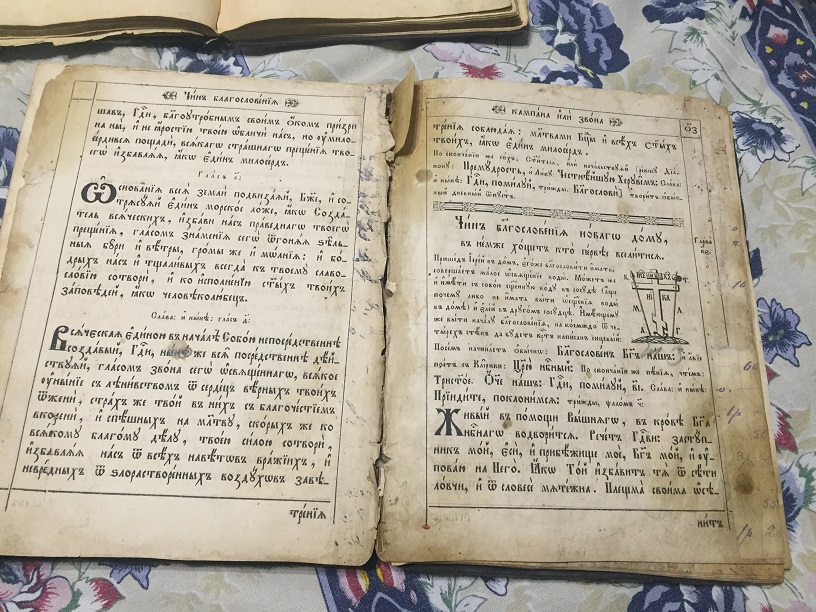 Чи́нъ благослове́нїѧ
шавъ, Гдⷭ҇и, благоꙋтро́бнымъ свои́мъ ѻ҆́комъ при́зри
на ны̀, и҆ не ꙗ҆́ростїю твое́ю ѡ҆бличѝ на́съ, но ᲂу҆мило-
се́рдивсѧ пощадѝ, всѧ́кагѡ стра́шнагѡ преще́нїѧ тво-
егѡ̀ и҆збавлѧ́ѧ, ꙗ҆́кѡ є҆ди́нъ милосе́рдъ.
Гла́съ и҃:
Ѡ҆снова́нїѧ всеѧ̀ землѝ подвиза́ѧй, Бж҃е, и҆ со-
трѧса́ѧй є҆ди́нъ морско́е ло́же, ꙗ҆́кѡ Созда́-
тель всѧ́ческихъ, и҆зба́ви на́съ пра́веднагѡ твоегѡ̀
преще́нїѧ, гла́сомъ зна́менїѧ сегѡ̀ ѿгонѧ́ѧ ѕѣ́ль-
ныѧ бу́ри и҆ вѣ́тры, гро́мы же и҆ мѡ́лнїѧ: и҆ бѡ́-
дрыхъ на́съ и҆ тщали́выхъ всегда̀ къ твоемꙋ̀ славо-
сло́вїю сотворѝ, и҆ ко и҆сполне́нїю ст҃ы́хъ твои́хъ
за́повѣдей, ꙗ҆́кѡ человѣколю́бецъ.
Сла́ва: и҆ ны́нѣ: гла́съ
Всѧ́ческаѧ є҆ди́ною въ нача́лѣ Собо́ю непосре́дственнѣ
созда́вый, Гдⷭ҇и, ны́нѣ же всѧ̑ посре́дственнѣ дѣ́й-
ствꙋѧй, гла́сомъ зво́на сегѡ̀ ѡ҆свѧще́ннагѡ, всѧ́кое
ᲂу҆ны́нїе съ лѣни́вствомъ ѿ серде́цъ вѣ́рныхъ твои́хъ
ѿженѝ, стра́хъ же тво́й въ ни́хъ съ благоче́стїемъ
вкоренѝ, и҆ спѣ́шныхъ на мл҃твꙋ, ско́рыхъ же ко
всѧ́комꙋ благо́мꙋ дѣ́лꙋ, твое́ю си́лою сотворѝ,
и҆збавлѧ́ѧ на́съ ѿ всѣ́хъ навѣ́тѡвъ вра́жїихъ, и҆
невреди́ныхъ ѿ ѕлорастворе́нныхъ воздꙋ́хѡвъ завѣ-
тре́нїѧ
кампа́на и҆лѝ зво́на
о҃з
тре́нїѧ соблюда́ѧ: мл҃твами Бцⷣы и҆ всѣ́хъ ст҃ы́хъ
твои́хъ, ꙗ҆́кѡ є҆ди́нъ милосе́рдъ.
По сконча́нїи же си́хъ, Ст҃и́тель, и҆лѝ нача́льствꙋѧй
вонꙋ̀: Премꙋ́дрость, и҆ Ли́къ: Честнѣ́йшꙋю Херꙋві̑мъ: Сла́ва:
и҆ ны́нѣ: Гдⷭ҇и, поми́лꙋй, три́жды. Благословѝ: твори́тъ ѻ҆бы́ч-
ный дневны́й ѿпꙋ́стъ.
Чи́нъ благослове́нїѧ но́вагѡ до́мꙋ,
въ не́мже хо́щетъ кто̀ пе́рвѣе всели́тисѧ.
Прише́дъ і҆ере́й въ до́мъ, є҆го́же благослови́ти и҆́мать,
соверша́етъ ма́лое ѡ҆свѧще́нїе воды̀. Мо́жетъ же
и҆ и҆мѣ́ти съ собо́ю ст҃ꙋ́ю во́дꙋ въ сосꙋ́дѣ
почемꙋ̀ ли́бо не и҆́мать бы́ти ѡ҆сщ҃е́нїѧ воды̀
въ домꙋ̀: и҆ є҆ле́й въ дрꙋго́мъ сосꙋ́дѣ. И҆мѣ́ющемꙋ
же бы́ти нача́лꙋ благослове́нїѧ, на ко́емждо ѿ че-
ты́рехъ стѣ́нъ да бꙋ́детъ крⷭ҇тъ напи́санъ
Посе́мъ начина́етъ ѻ҆бы́чнѡ: Благослове́нъ Бг҃ъ на́шъ: и҆ а҆́бїе
пою́тъ Цр҃ю̀ нбⷭ҇ный: По сконча́нїи же пѣ́нїѧ, чте́мъ:
Трист҃о́е. Ѻ҆́ч҃е на́шъ: Гдⷭ҇и, поми́лꙋй, в҃і. Сла́ва: и҆ ны́нѣ:
Прїиди́те, поклони́мсѧ: три́жды, ѱало́мъ ч҃:
Живы́й въ по́мощи Вы́шнѧгѡ, въ кро́вѣ Бг҃а
нбⷭ҇нагѡ водвори́тсѧ. Рече́тъ Гдⷭ҇ви: застꙋ́п-
никъ мо́й, є҆сѝ, и҆ прибѣ́жище моѐ, Бг҃ъ мо́й, и҆ ᲂу҆-
пова́ю на Него̀. Ꙗ҆́кѡ То́й и҆зба́витъ тѧ̀ ѿ сѣ́ти
ло́вчи, и҆ ѿ словесѐ мѧте́жна. Плещма̀ свои́ма ѡ҆сѣ-
ни́тъ